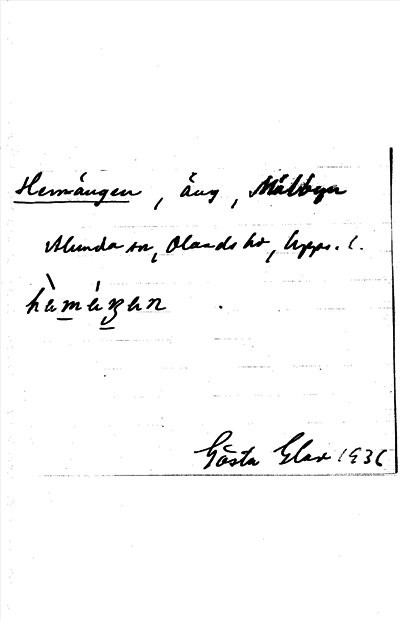 Hemängen, äng, Målbyn
Alunda sn, Olands hd, Upps. l.
Gösta Glas 1936